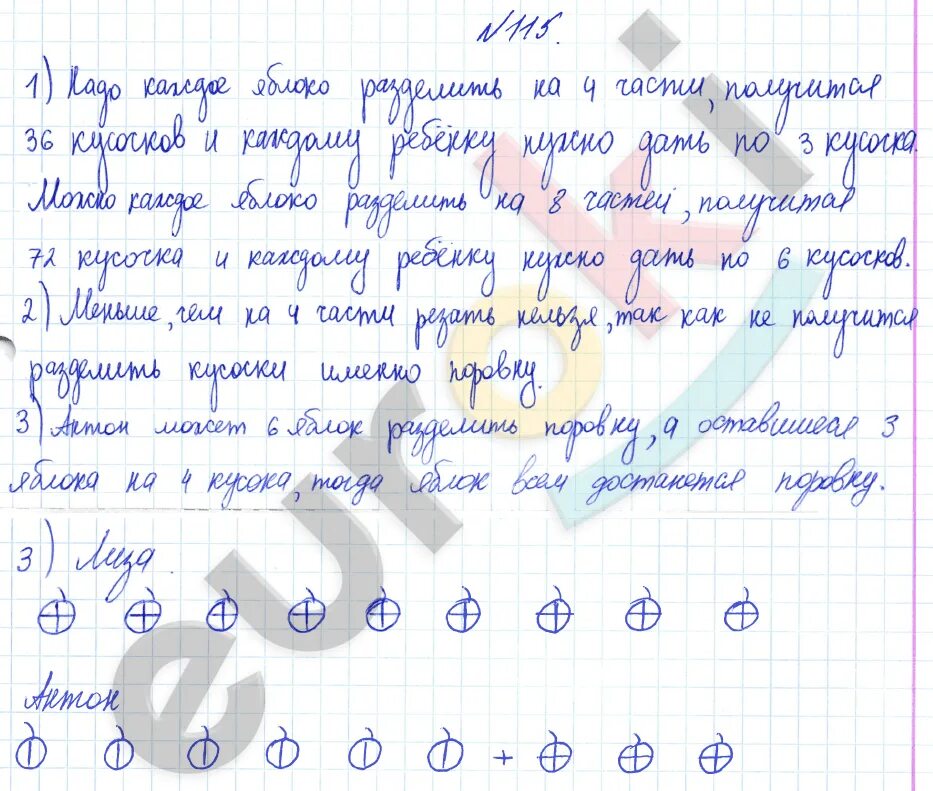 №115.
1) Надо каждое яблоко разделить на 4 части, получится
36 кусочков и каждому ребёнку нужно дать по 3 кусочка.
Можно каждое яблоко разделить на 8 частей, получится
72 кусочка и каждому ребёнку нужно дать по 6 кусосков.
2) Меньше, чем на 4 части резать нельзя, так как не получится
разделить кусоски именно поровну.
3) Антон может 6 яблок разделить поровну, а оставшиеся 3
яблока на 4 кусока, тогда яблок всем достанется поровну.
3) Лиза.
Антон
+
euroki